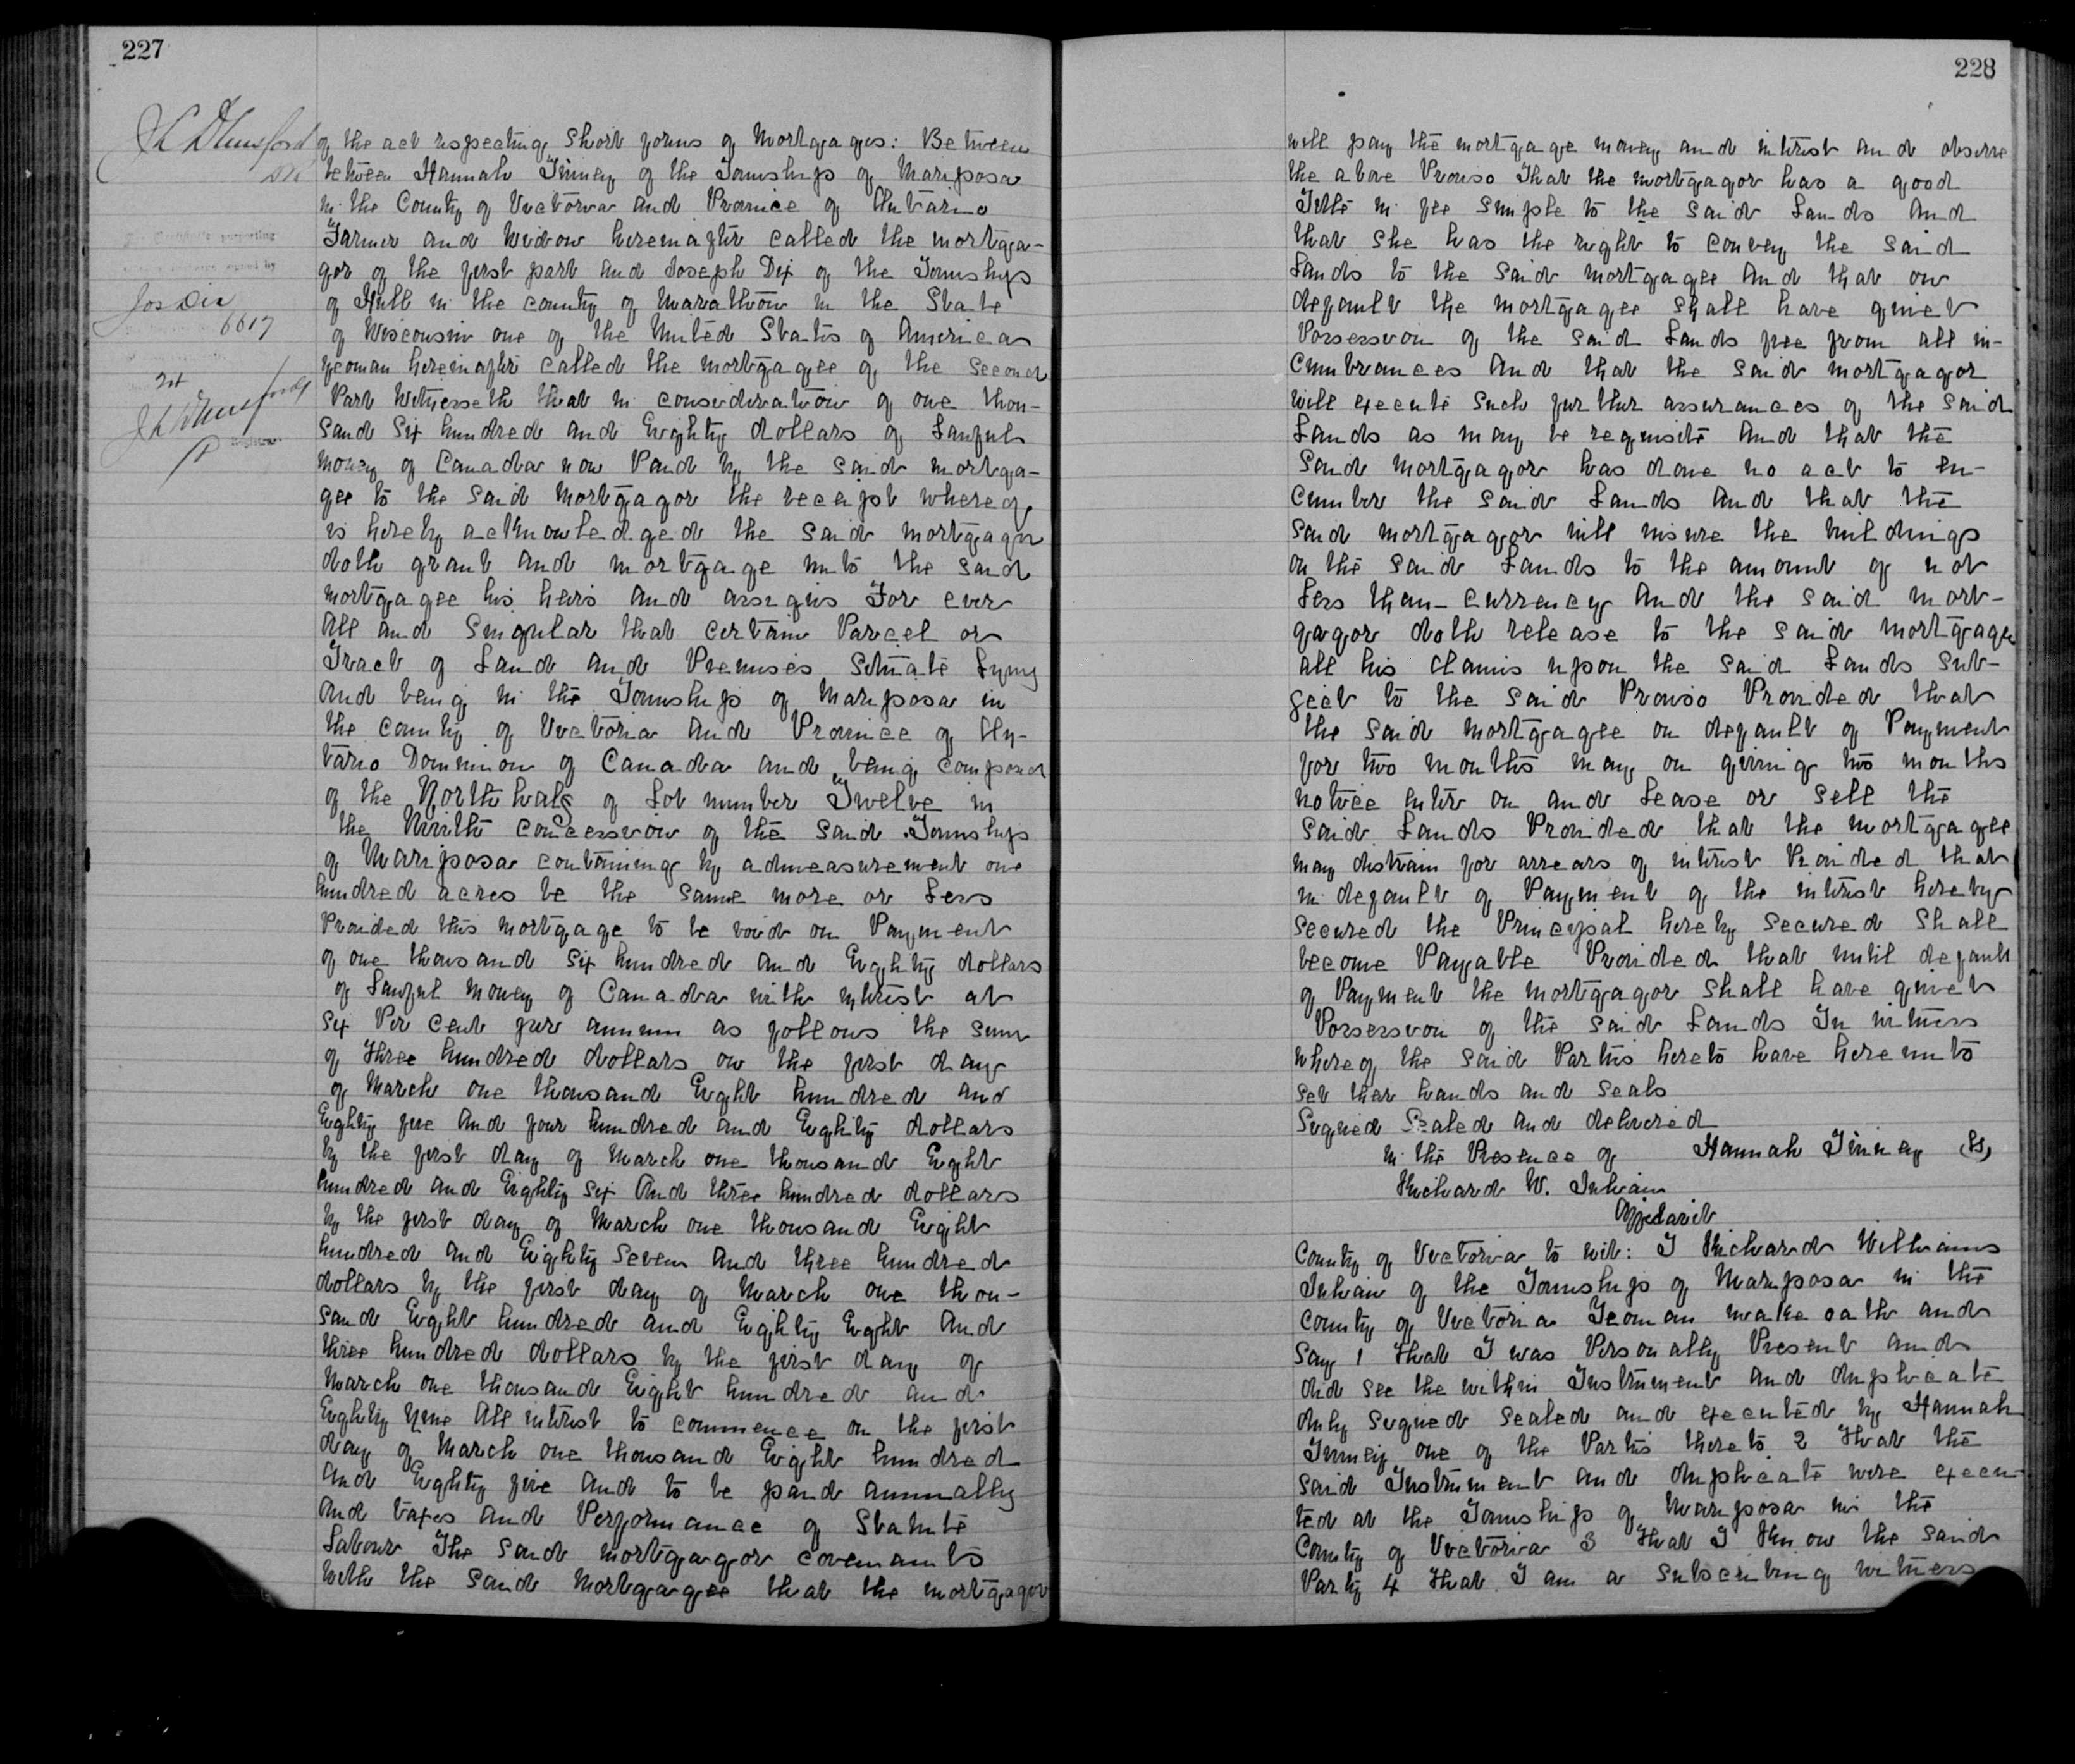 227
of the act respecting Short forms of Mortgages: Between
between Hannah Tinney of the Township of Mariposa
in the County of Victoria and Province of Ontario
Farmer and Widow hereinafter called the mortga-
gor of the first part and Joseph Dix of the Township
of Hull in the county of Marathon in the State
of Wisconsin one of the United States of America
yeoman hereinafter called the mortgagee of the second
Part Witnesseth that in consideration of one thou-
sand Six hundred and Eighty dollars of Lawful
money of Canada now Paid by the said mortga-
gee to the said Mortgagor the receipt whereof
is hereby acknowledged the said mortgagor
doth grant and mortgage unto the said
mortgagee his heirs and assigns For ever
All and Singular that certain Parcel or
Tract of Land and Premises Situate Lying
and being in the Township of Mariposa in
the County of Victoria and Province of On-
tario Dominion of Canada and being composed
of the North half of Lot number Twelve in
the Ninth concession of the said Township
of Mariposa containing by admeasurement one
hundred acres be the same more or Less
Provided this mortgage to be void on Payment
of one thousand Six hundred and Eighty dollars
of Lawful money of Canada with interest at
Six Per Cent per annum as follows the sum
of three hundred dollars on the first day
of March one thousand Eight hundred and
Eighty five And four hundred and Eighty dollars
by the first day of March one thousand Eight
hundred and Eighty Six And three hundred dollars
by the first day of March one thousand Eight
hundred and Eighty Seven And three hundred
dollars by the first day of March one thou-
sand Eight hundred and Eighty Eight And
three hundred dollars by the first day of
March one thousand Eight hundred and
Eighty Nine All interest to commence on the first
day of March one thousand Eight hundred
and Eighty five And to be paid annually
And taxes and Performance of Statute
Labour The said mortgagor covenants
with the said Mortgagee that the mortgagor
Jos Dix
6617
Registrar
228
will pay the mortgage money and interest and observe
the above Proviso That the mortgagor has a good
Title in fee simple to the said Lands And
that she has the right to convey the said
Lands to the said mortgagee And that on
default the mortgagee shall have quiet
Possession of the said Lands free from all in-
cumbrances And that the said mortgagor
will execute such further assurances of the said
Lands as may be requisite And that the
said mortgagor has done no act to en-
cumber the said Lands And that the
said mortgagor will insure the buildings
on the said Lands to the amount of not
Less than - currency And the said mort-
gagor doth release to the said mortgagee
all his claims upon the said Lands Sub-
ject to the said Proviso Provided that
the said mortgagee on default of Payment
for two months may on giving two months
notice enter on and Lease or Sell the
said Lands Provided that the mortgagee
may distrain for arrears of interest Provided that
in default of Payment of the interest hereby
secured the Principal hereby secured shall
become Payable Provided that until default
of Payment the mortgagor shall have quiet
Possession of the said Lands In witness
whereof the said Parties hereto have hereunto
set their hands and seals
Signed Sealed and delivered
in the Presence of Hannah Tinney (LS)
Richard W. Inhain
Affidavit
County of Victoria to wit: I Richard Williams
Inhain of the Township of Mariposa in the
county of Victoria Yeoman make oath and
say 1 that I was Personally Present and
did see the within Instrument and duplicate
duly signed sealed and executed by Hannah
Tinney one of the Parties thereto 2 that the
said Instrument and duplicate were execu-
ted at the Township of Mariposa in the
County of Victoria 3 that I know the said
Party 4 that I am a Subscribing witness